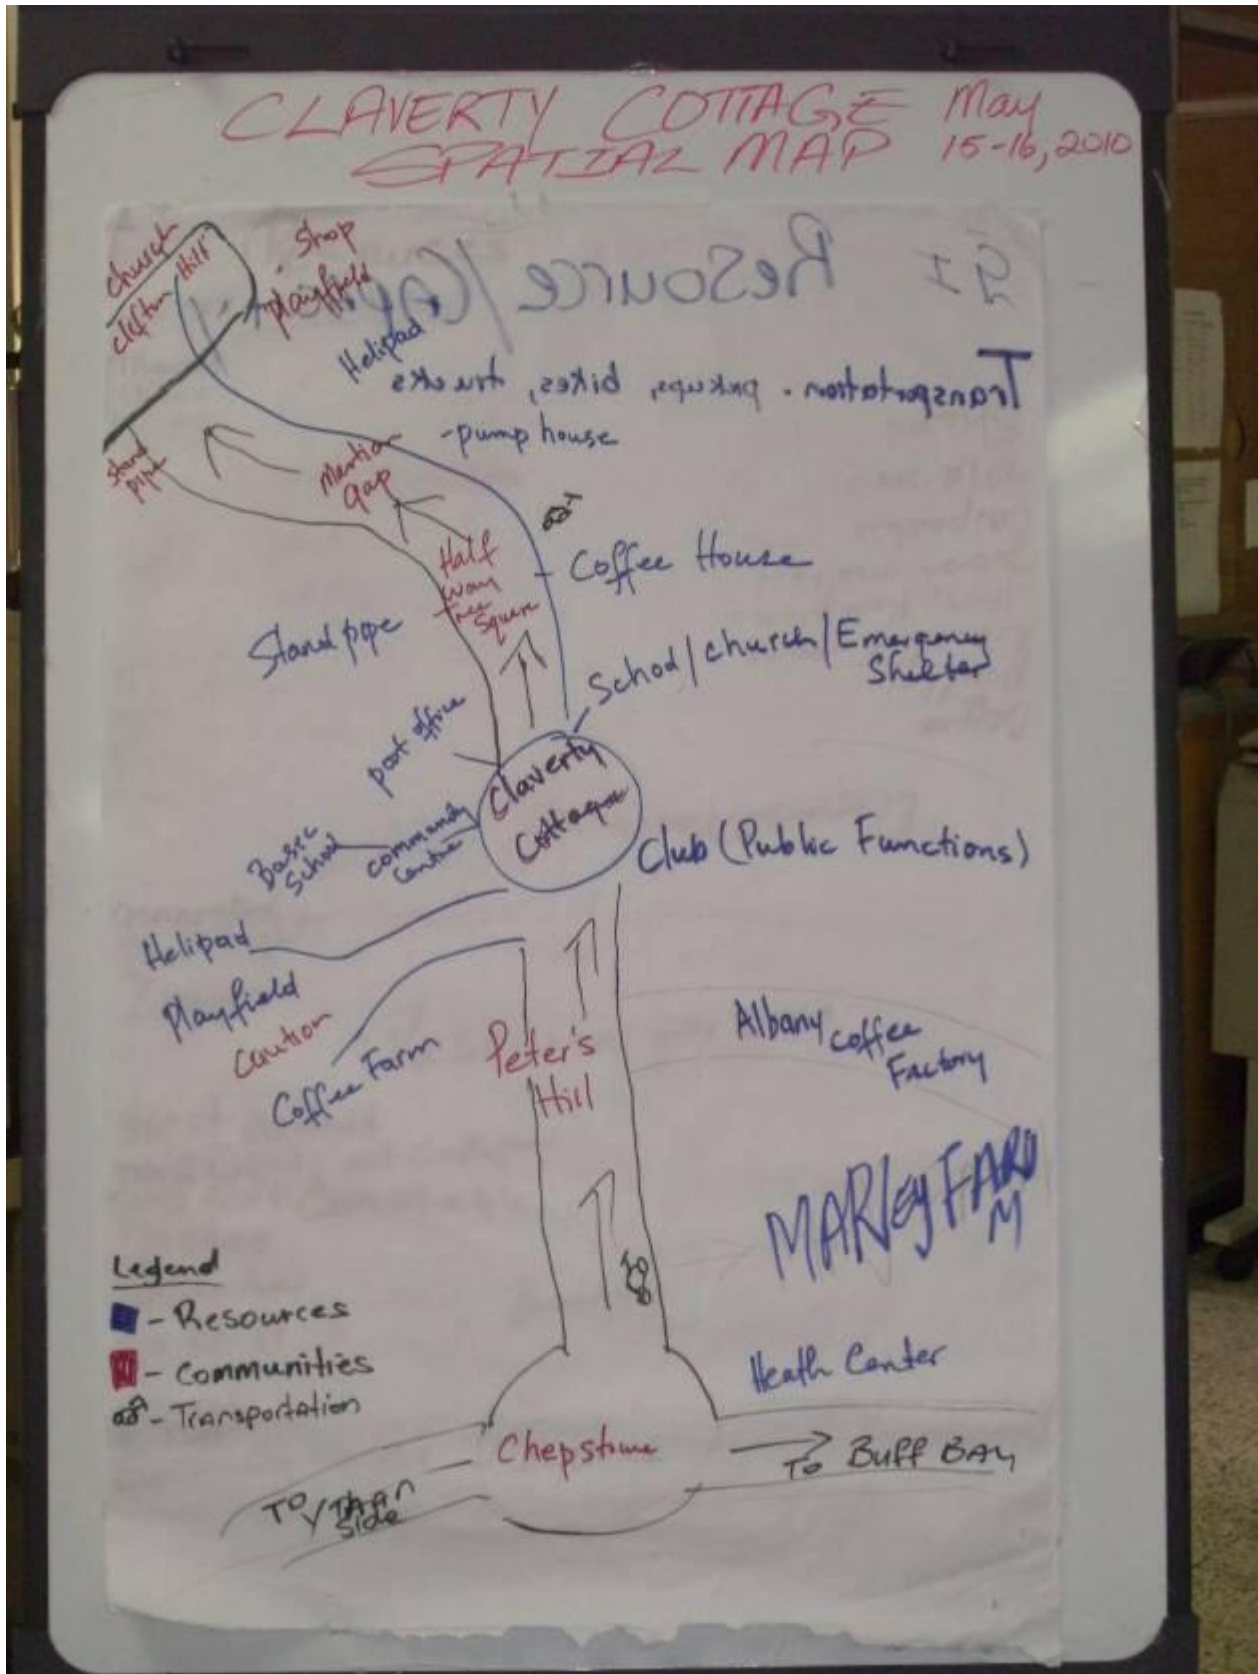 CLAVERTY COTTAGE May
SPATIAL MAP 15-16, 2010
Church
Clifton Hill
Shop
Playfield
Resource/
Helipad
Transportation - pickups, bikes, trucks
- pump house
Stand
pipe
Gap
Half
Way
Tree
Square
Coffee House
Stand pipe
School/church/Emergency
Shelter
post office
Claverty
Cottage
Basic
School
Community
Centre
Club (Public Functions)
Helipad
Playfield
Caution
Coffee Farm
Peter's
Hill
Albany Coffee
Factory
MARley FARM
Legend
- Resources
- Communities
- Transportation
Heath Center
Chepstowe
To BUFF BAY
TO
Side